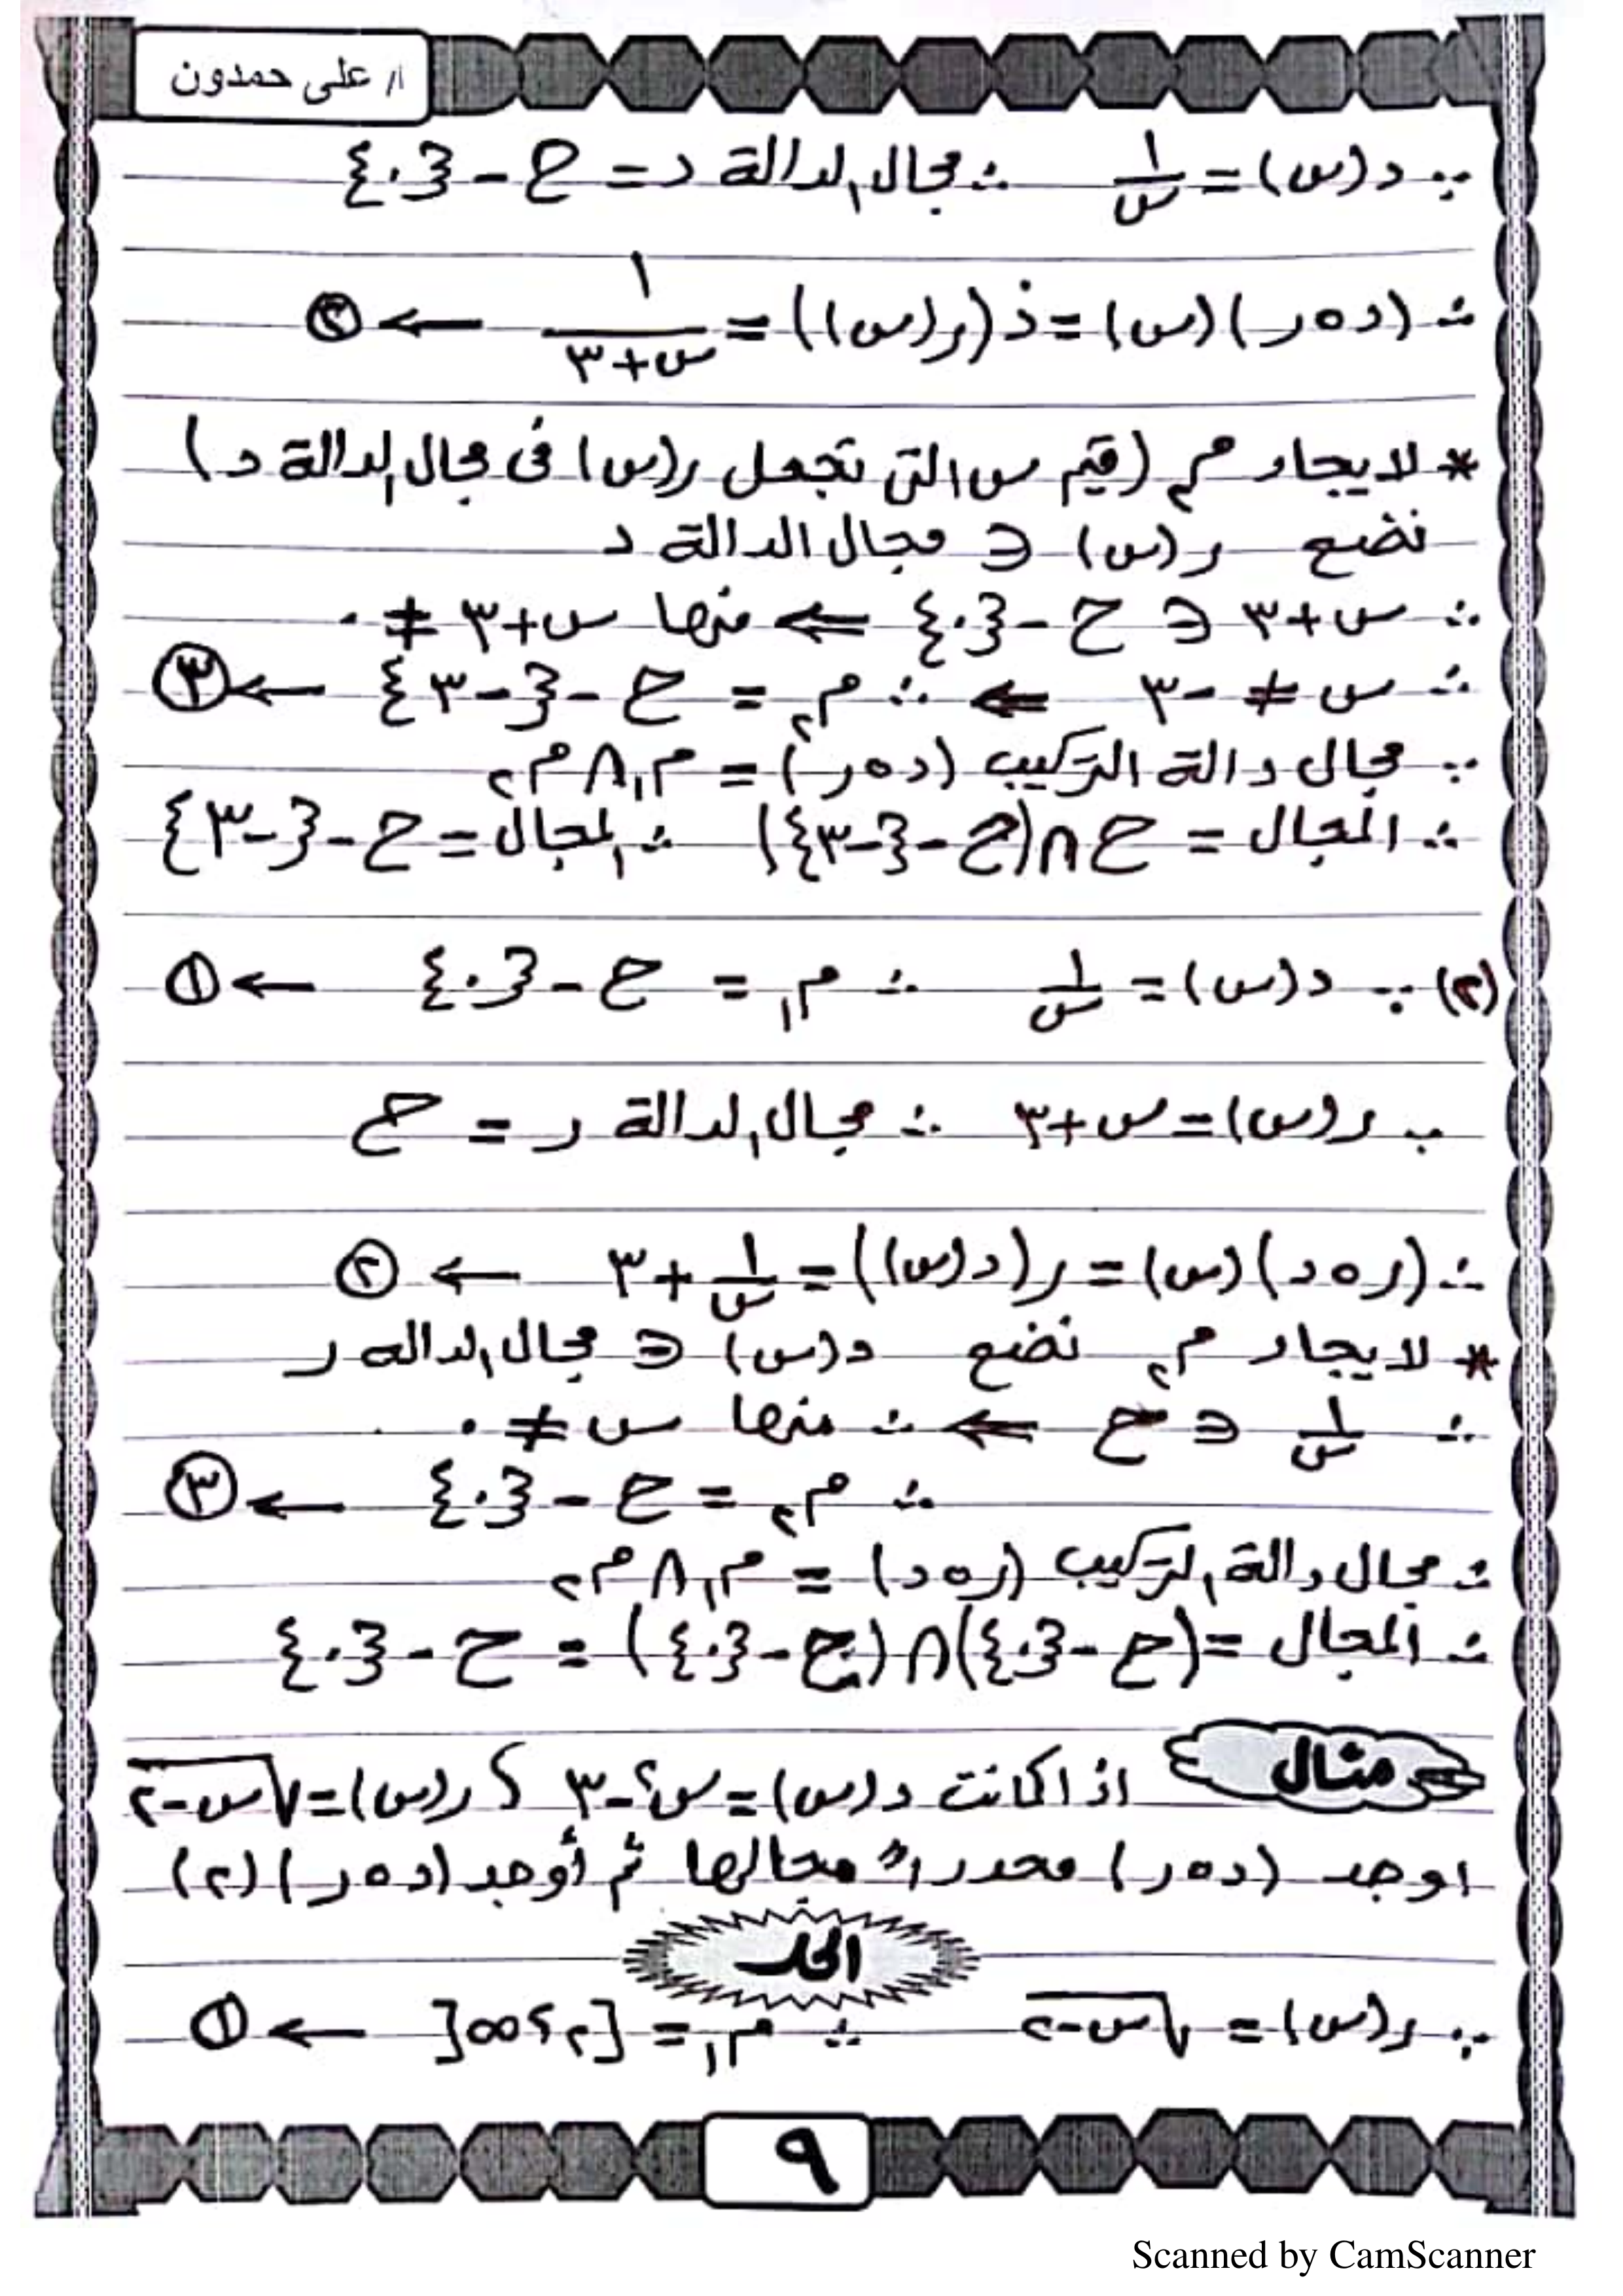 أ/ على حمدون
∵ د(س) = ١/س ∴ مجال الدالة د = ح - {٠}
∴ (د∘ر)(س) = د(ر(س)) = ١/(س+٣) ← ②
* لايجاد م٢ (قيم س التى تجعل ر(س) فى مجال الدالة د)
نضع ر(س) ∈ مجال الدالة د
∴ س+٣ ∈ ح - {٠} ⇐ منها س+٣ ≠ ٠
∴ س ≠ -٣ ⇐ ∴ م٢ = ح - {-٣} ← ③
∵ مجال دالة التركيب (د∘ر) = م١ ∩ م٢
∴ المجال = ح ∩ (ح - {-٣}) ∴ المجال = ح - {-٣}
(٢) ∵ د(س) = ١/س ∴ م١ = ح - {٠} ← ①
∵ ر(س) = س+٣ ∴ مجال الدالة ر = ح
∴ (ر∘د)(س) = ر(د(س)) = ١/س + ٣ ← ②
* لايجاد م٢ نضع د(س) ∈ مجال الداله ر
∴ ١/س ∈ ح ⇐ ∴ منها س ≠ ٠
∴ م٢ = ح - {٠} ← ③
∴ مجال دالة التركيب (ر∘د) = م١ ∩ م٢
∴ المجال = (ح - {٠}) ∩ (ح - {٠}) = ح - {٠}
مثال اذا كانت د(س) = س² - ٣ ، ر(س) = √(س-٢)
اوجد (د∘ر) محددا مجالها ثم أوجد (د∘ر)(٢)
الحل
∵ ر(س) = √(س-٢) ∴ م١ = [٢، ∞[ ← ①
٩
Scanned by CamScanner